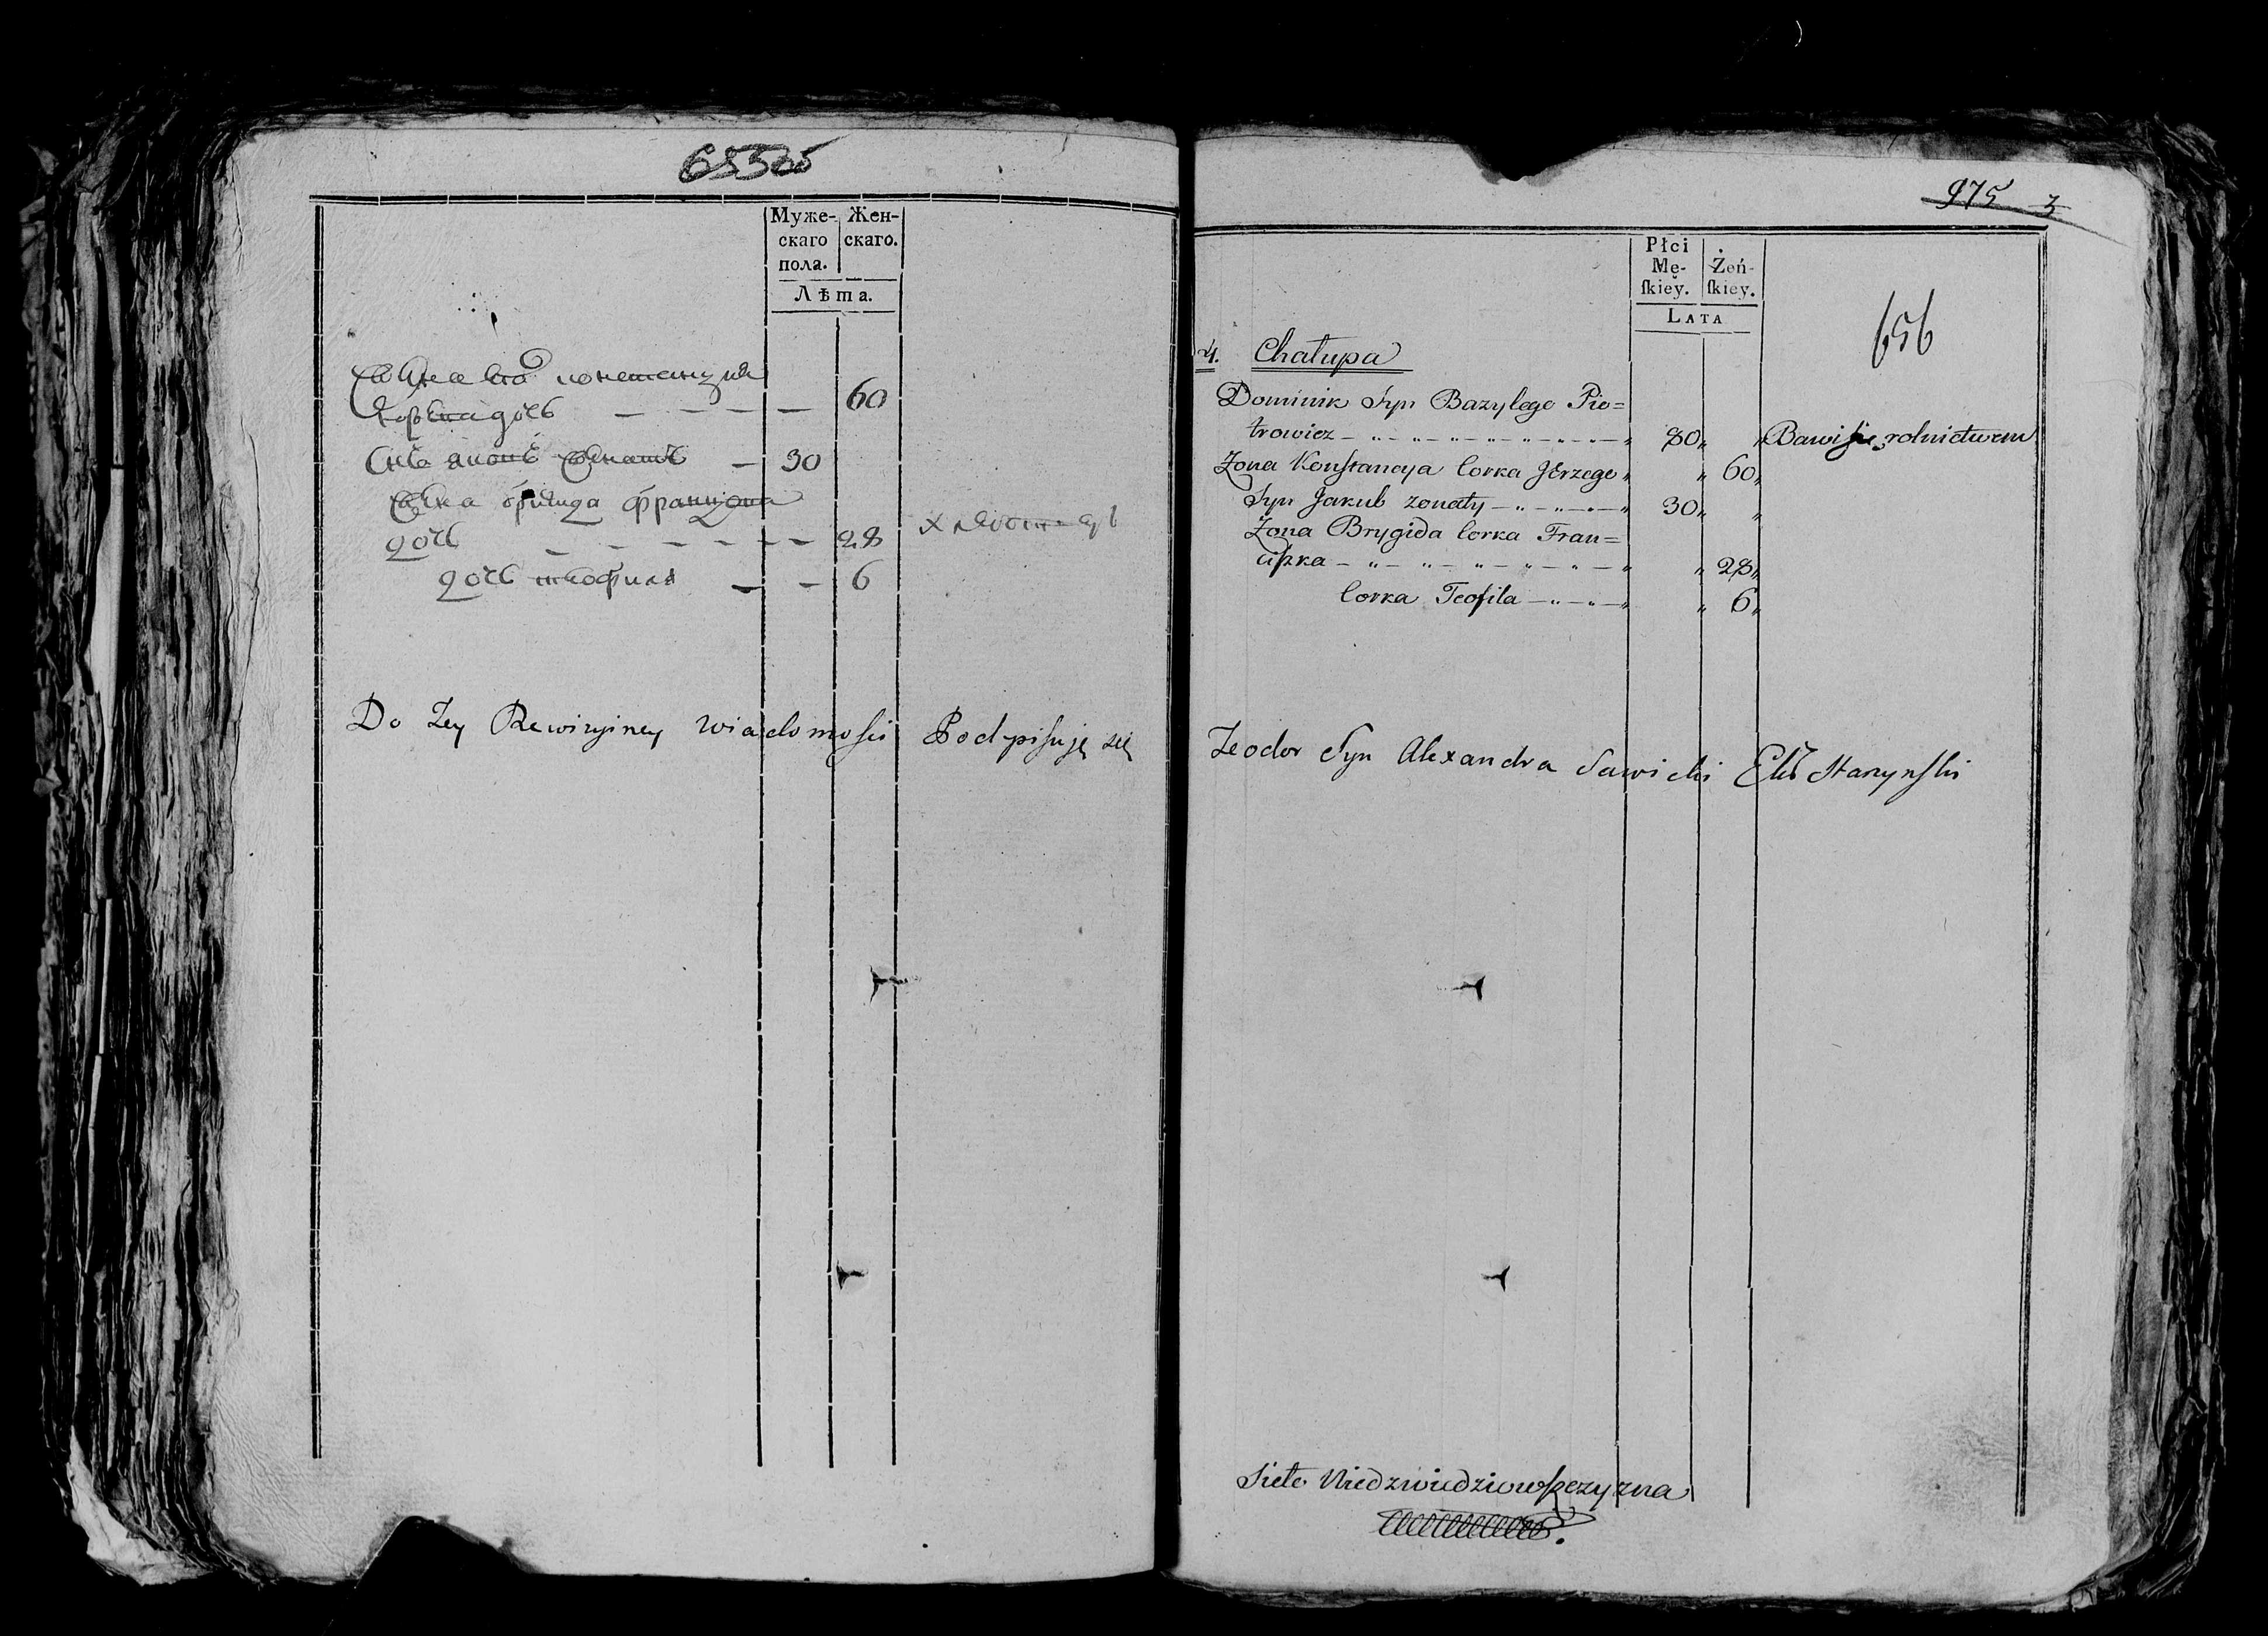 655об
Муже-
скаго
пола.
Жен-
скаго.
Лѣта.
Жена его констанция
дочь — — — — 60
Сынъ якобъ женатъ — 30
Жена бригида францишка
дочь — — — — — — 28
дочь теофиля — — 6
Do Tey Rewizyiney wiadomosci Podpisuję się
975 3
656
Płci
Mę-
skiey.
Żeń-
skiey.
LATA
4. Chałupa
Dominik Syn Bazylego Pio=
trowicz — „ — „ — „ — „ — „ — „ 80 „ „ Bawi się rolnictwem
Zona Konstancya Corka Jerzego „ „ 60 „
Syn Jakub zonaty — „ — „ — „ 30 „ „
Zona Brygida Corka Fran=
ciszka — „ — „ — „ — „ — „ — „ „ 28 „
Corka Teofila — „ — „ — „ „ 6 „
Teodor Syn Alexandra Sawicki
Sieło Niedzwiedziowszczyzna